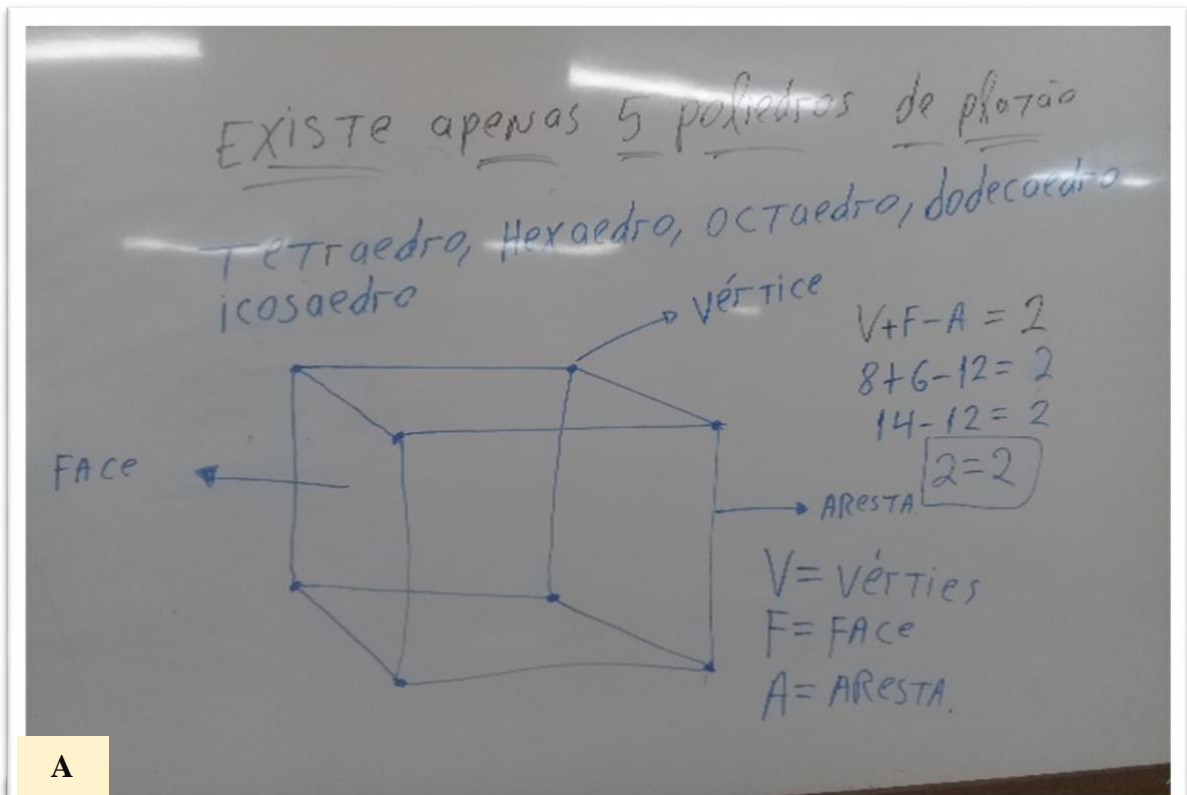 EXISTE apenas 5 poliedros de platão
Tetraedro, Hexaedro, octaedro, dodecaedro
icosaedro
vértice
V+F-A = 2
8+6-12= 2
14-12= 2
2=2
FACE
ARESTA
V= VérTies
F= FACE
A= ARESTA.
A